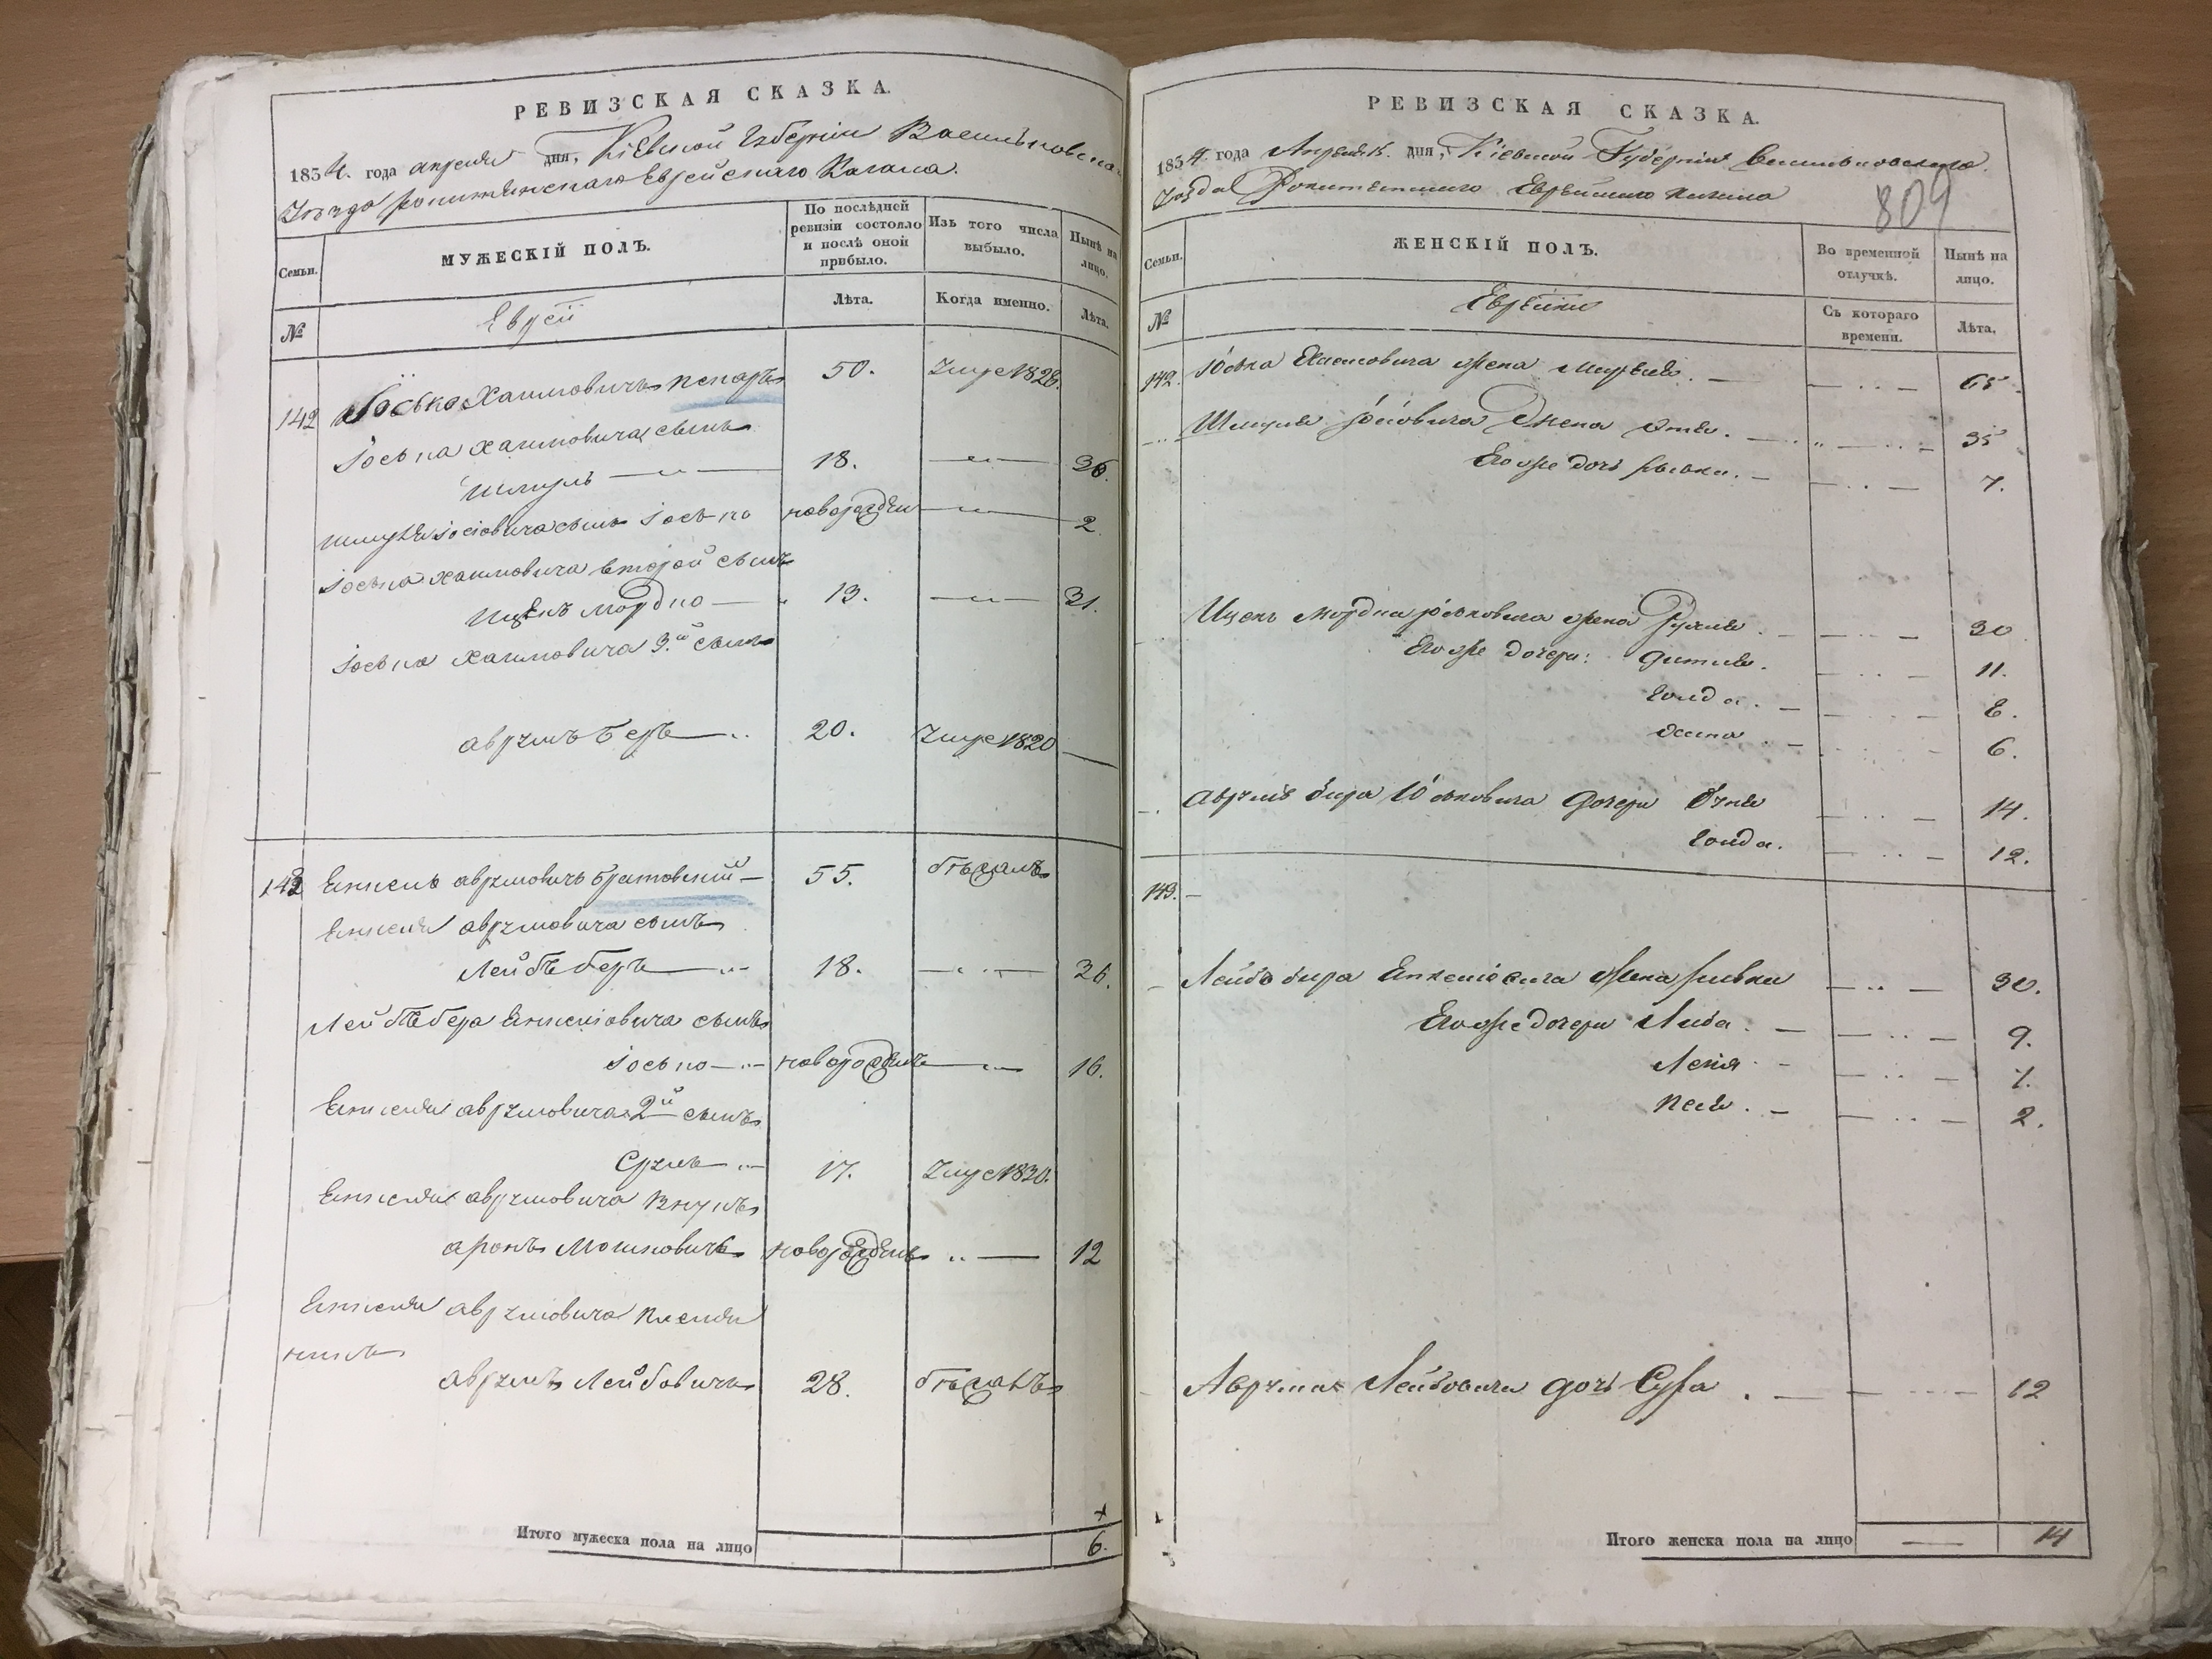 РЕВИЗСКАЯ СКАЗКА.
1834. года апреля дня, Кіевской Губерніи Васильковска
Уезда Ракитянскаго Еврейскаго Кагала.
Семьи.
МУЖЕСКІЙ ПОЛЪ.
По послѣдней ревизіи состояло и послѣ оной прибыло.
Изъ того числа выбыло.
Нынѣ на лицо.
№
Еврей
Лѣта.
Когда именно.
Лѣта.
142 Іосько Хаимовичъ 50. Умре 1828.
Іоська Хаимовича сынъ
Шмуль 18. 36.
Шмуля Іосіовича сынъ Іосько новорожден 2
Іоська Хаимовича второй сынъ
Ицекъ Мордко 13. 31.
Іоська Хаимовича 3й сынъ
Аврумъ Беръ 20. Умре 1820
143 Енкель Аврумовичъ 55. бѣжалъ
Енкеля Аврумовича сынъ
Лейбъ Беръ 18. 36.
Лейбъ Бера Енкеліовича сынъ
Іосько новорожденъ 16.
Енкеля Аврумовича 2й сынъ
Срулъ 17. Умре 1830.
Енкеля Аврумовича Внукъ
Аронъ Мошковичъ новорожденъ 12
Енкеля Аврумовича племян
никъ
Аврумъ Лейбовичъ 28. бѣжалъ
Итого мужеска пола на лицо 6.
РЕВИЗСКАЯ СКАЗКА.
1834. года Апреля дня, Кіевской Губерніи Васильковскаго
Уезда Рокитянскаго Еврейскаго Кагала
809
Семьи.
ЖЕНСКІЙ ПОЛЪ.
Во временной отлучкѣ.
Нынѣ на лицо.
№
Еврейки
Съ котораго времени.
Лѣта.
142. Іоська Хаимовича жена 65
Шмуля Іосіовича Жена 35
Его же дочь Рывка. 7.
Ицекъ Мордка Іоськовича жена Рухля. 30
Его же дочери: 11.
Голда. 8.
6.
Аврумъ Бера Іоськовича дочери 14.
Голда. 12.
143.
Лейбъ Бера Енкеліовича жена Ривка 30.
Его же дочери Либа. 9.
7.
Песя. 2.
Аврума Лейбовича дочь Сура. 12
Итого женска пола на лицо 14